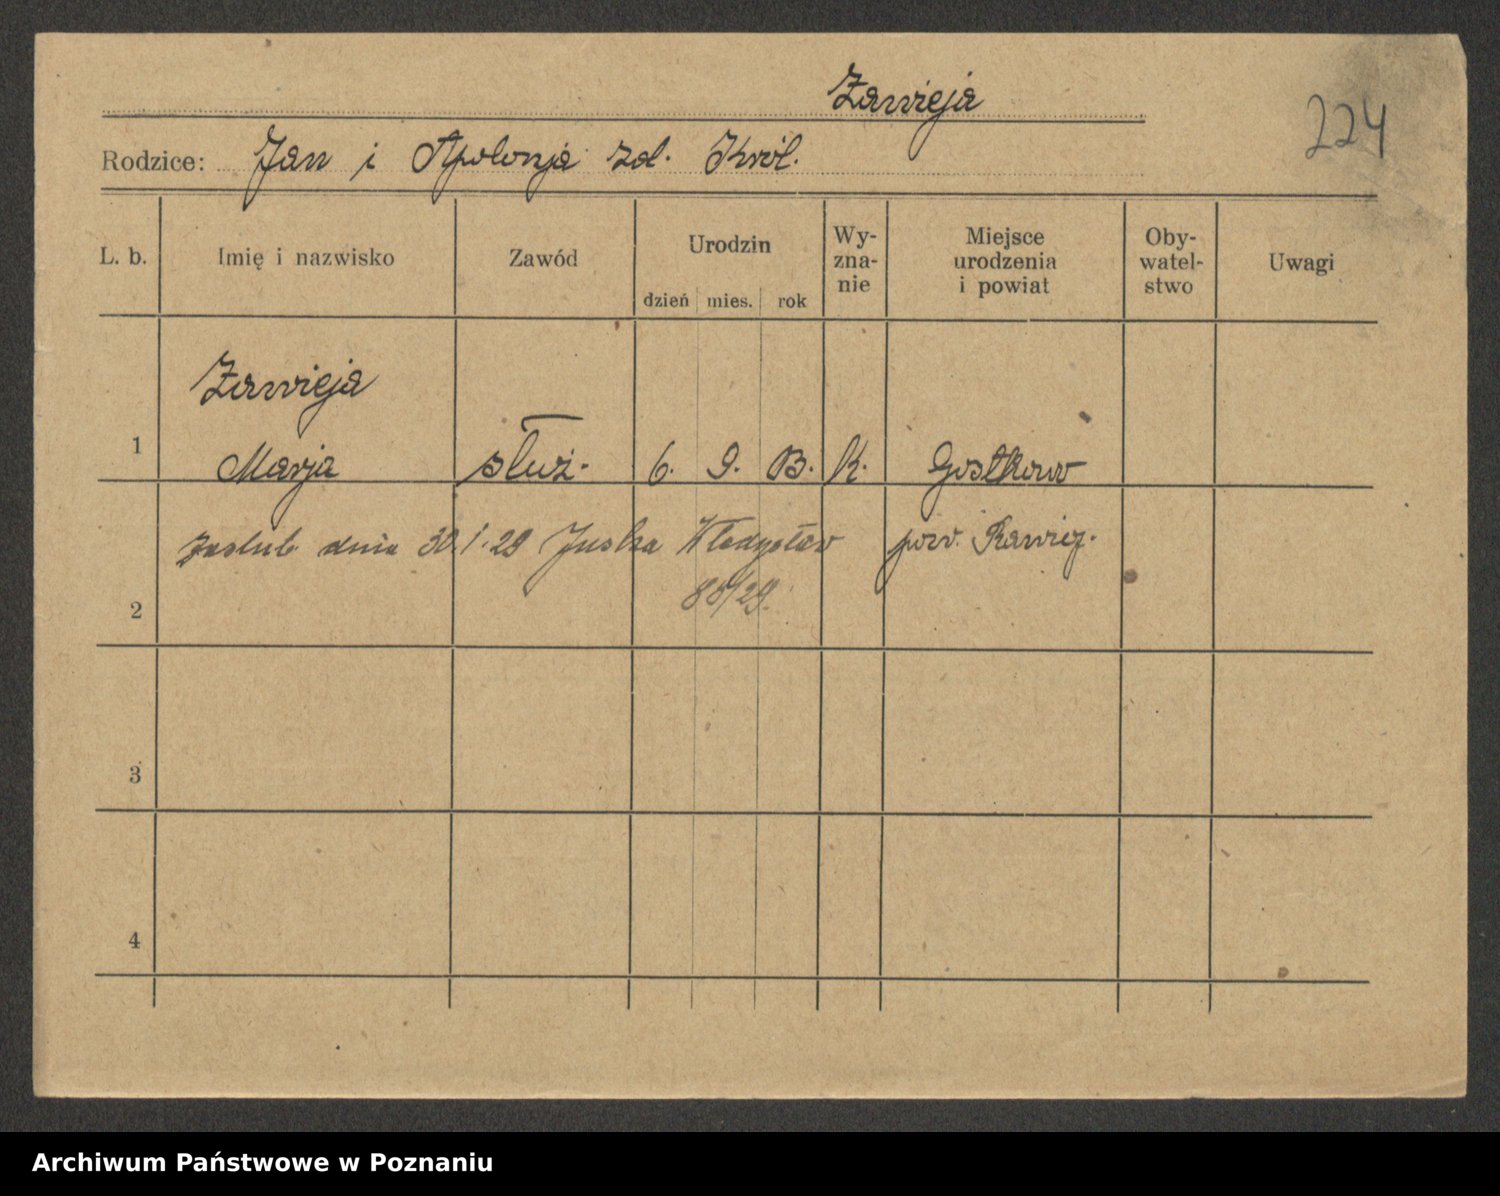 Zawieja
224
Rodzice: Jan i Apolonja zd. Król.
L. b. Imię i nazwisko Zawód Urodzin dzień mies. rok Wy-zna-nie Miejsce urodzenia i powiat Oby-watel-stwo Uwagi
Zawieja
1 Marja służ. 6. 9. 03. K. Gostkowo
zaślub dnia 30.1.29 Juska Władysław pow. Rawicz.
88/29.
2
3
4
Archiwum Państwowe w Poznaniu